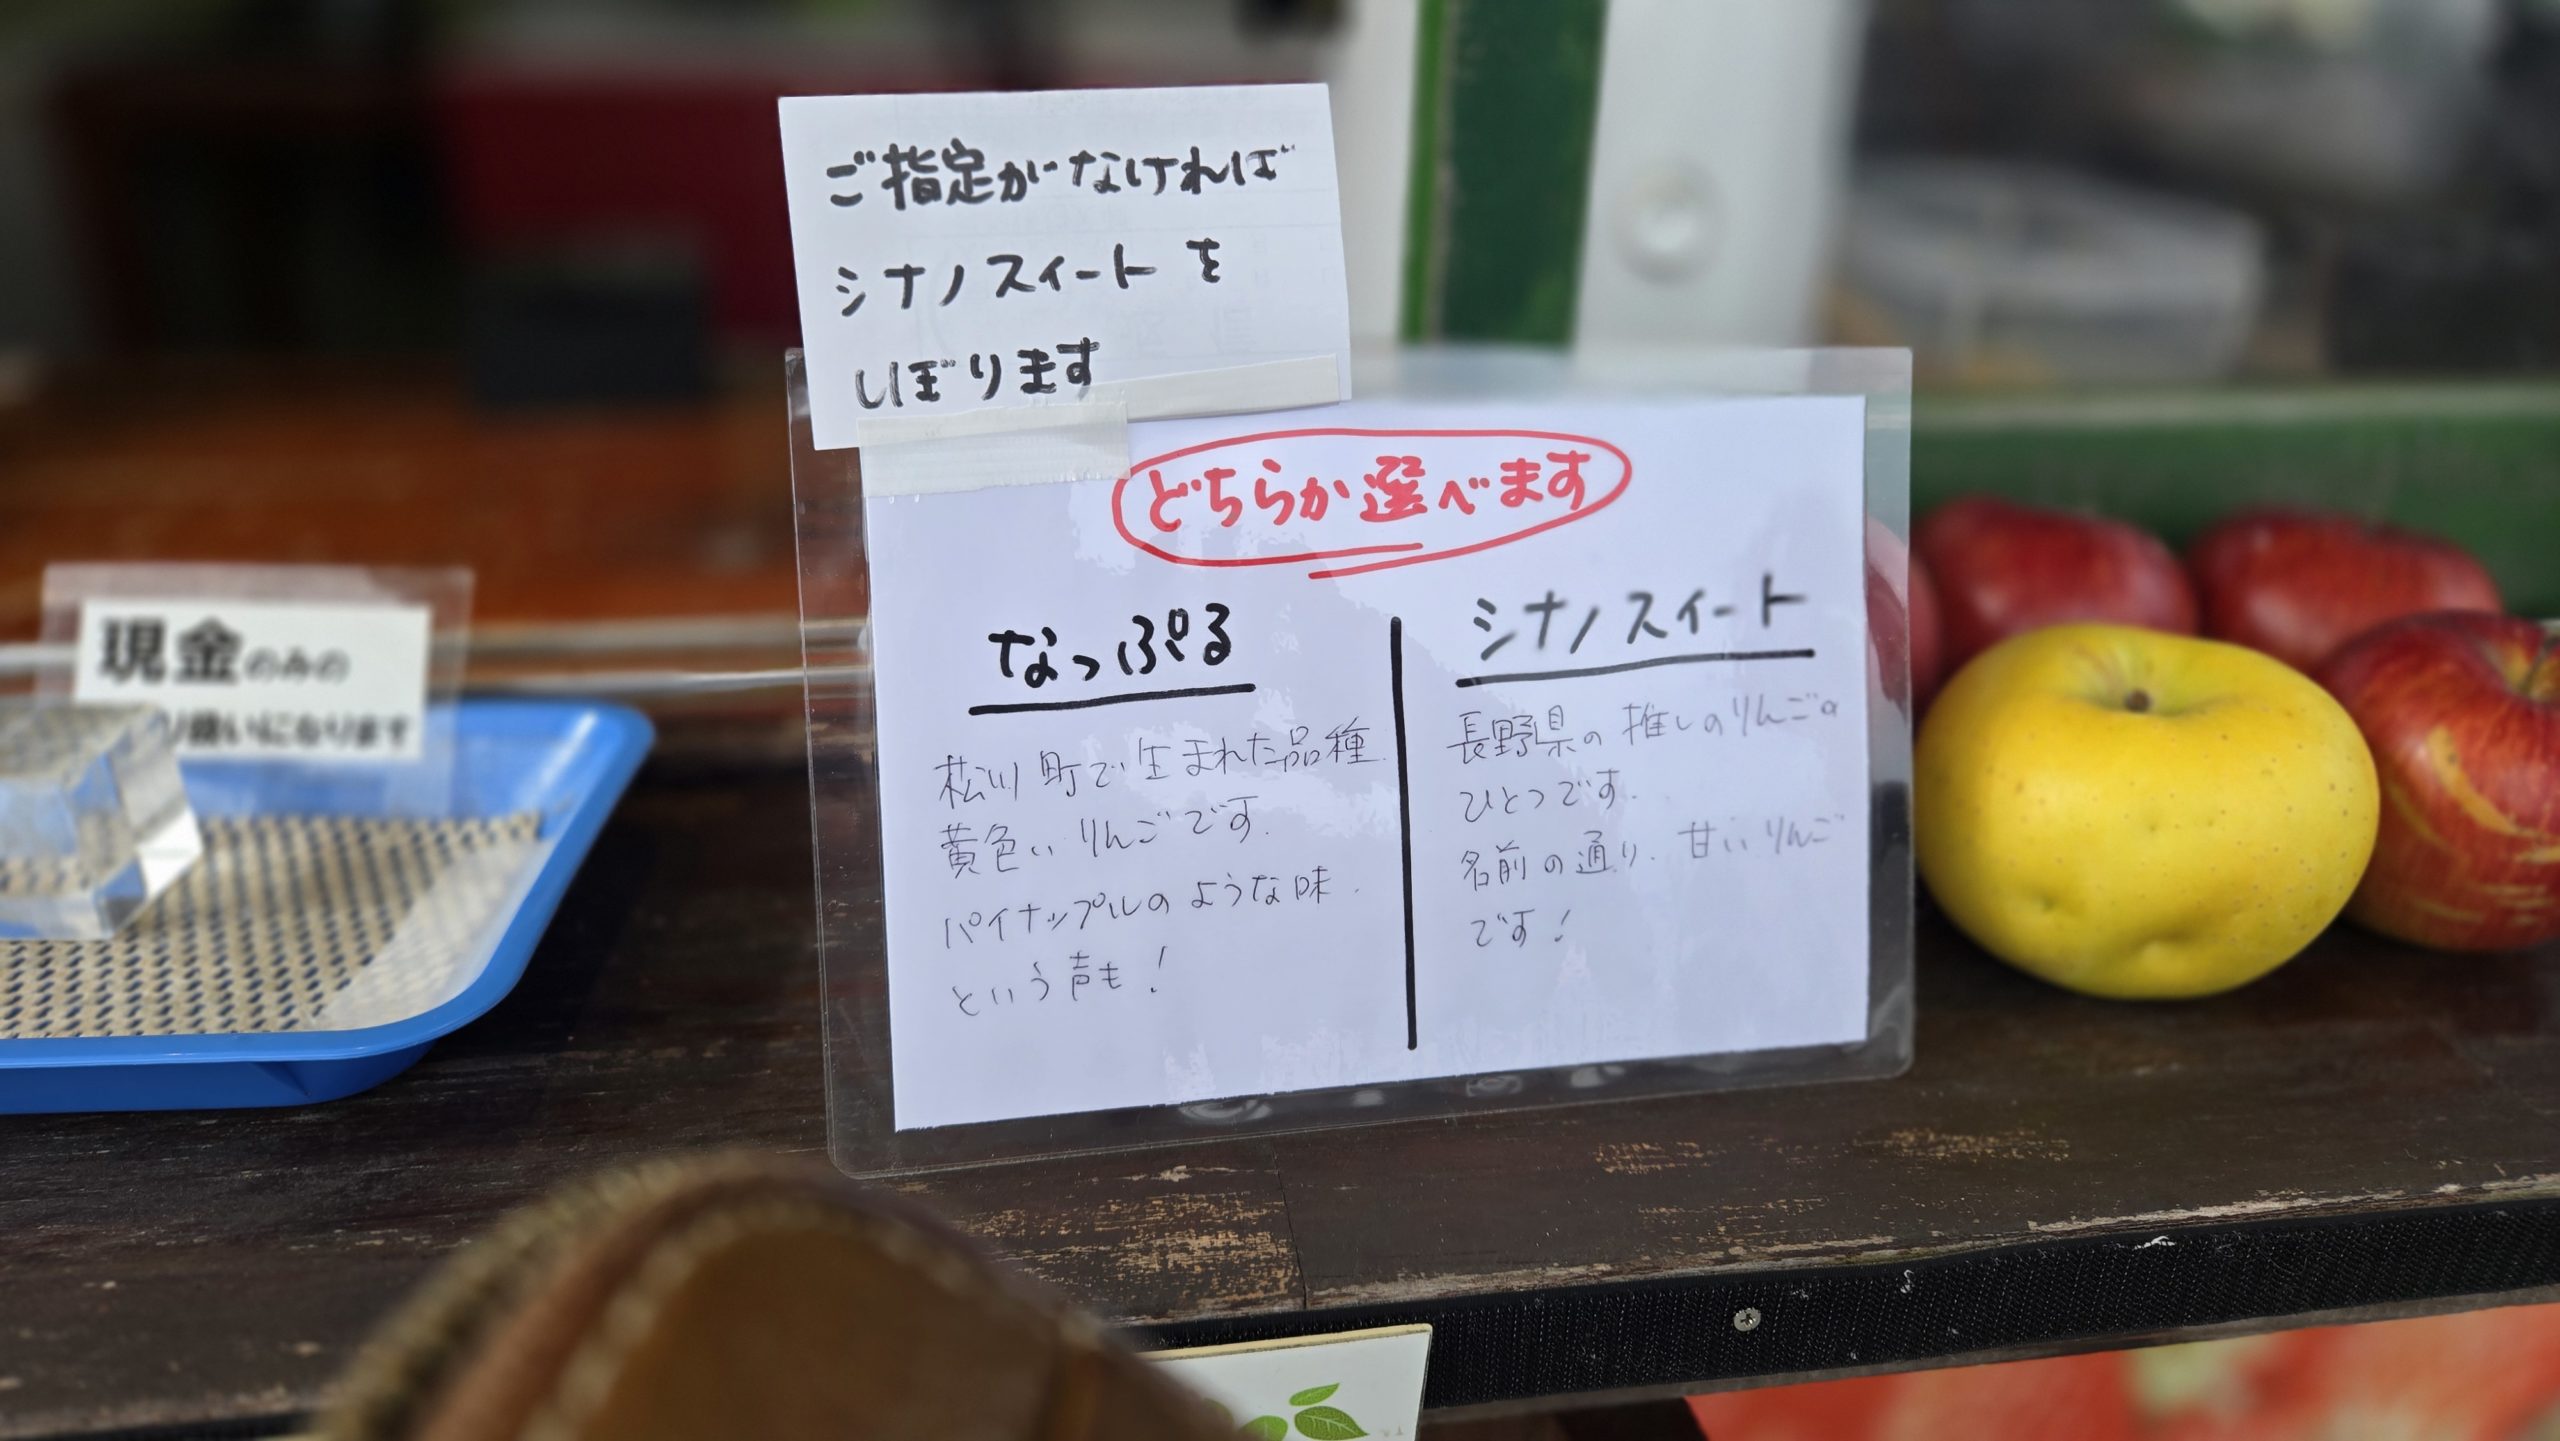 ご指定がなければ
シナノスイートを
しぼります
どちらか選べます
なっぷる
松川町で生まれた品種
黄色いりんごです.
パイナップルのような味.
という声も!
シナノスイート
長野県の推しのりんごの
ひとつです.
名前の通り、甘いりんご
です!
現金のみの
り扱いになります